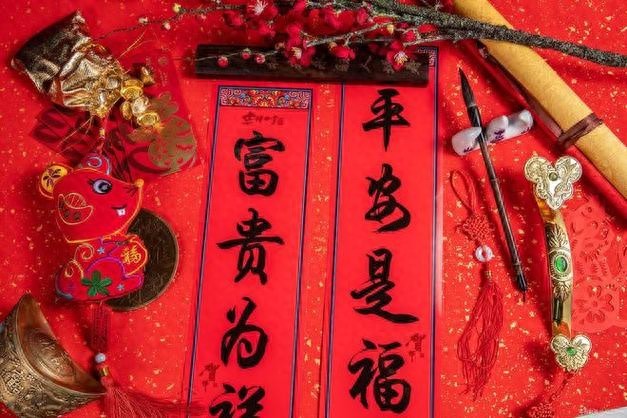 平安是福
富贵为祥
福